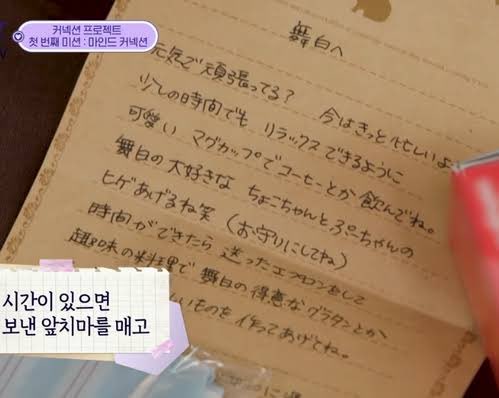 커넥션 프로젝트
첫 번째 미션 : 마인드 커넥션
舞白へ
元気で頑張ってる? 今はきっと忙しいよ
少しの時間でも リラックスできるように
可愛い マグカップでコーヒーとか飲んでね。
舞白の大好きな ちょこちゃんとぷーちゃんの
ヒゲあげるね笑 (お守りにしてね)
時間ができたら 送ったエプロンをして
趣味の料理で 舞白の得意なグラタンとか
いものを作ってあげてね。
시간이 있으면
보낸 앞치마를 매고